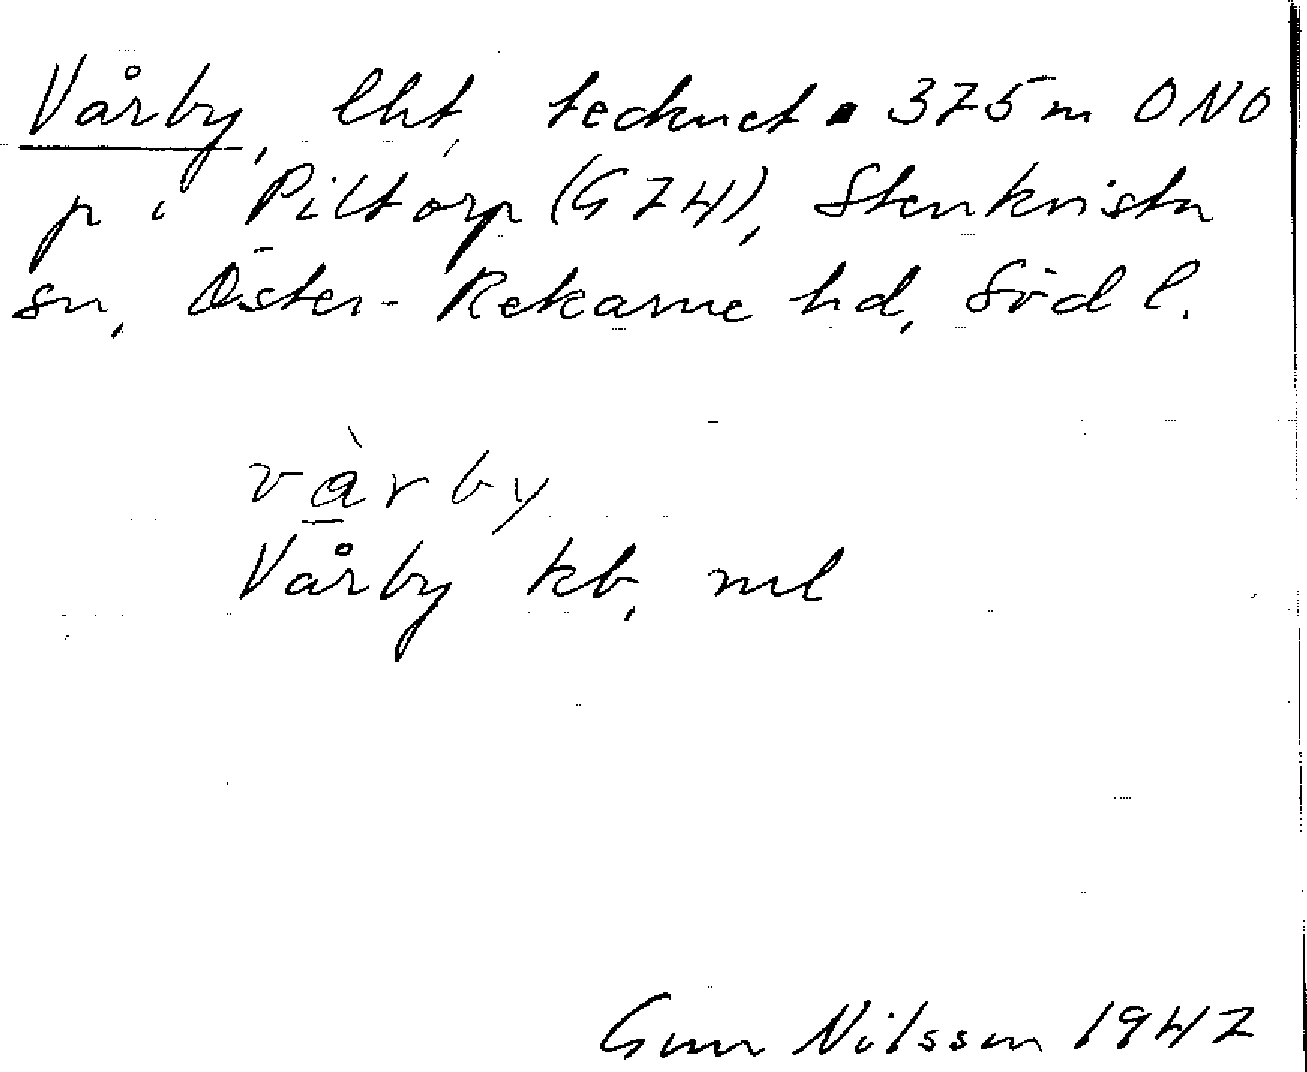 Vårby, lht, tecknet ▪ 375 m ONO
p i Piltorp (G 74), Stenkvista
sn, Öster-Rekarne hd, Söd l.
vàrby
Vårby kb, ml
Gun Nilsson 1947